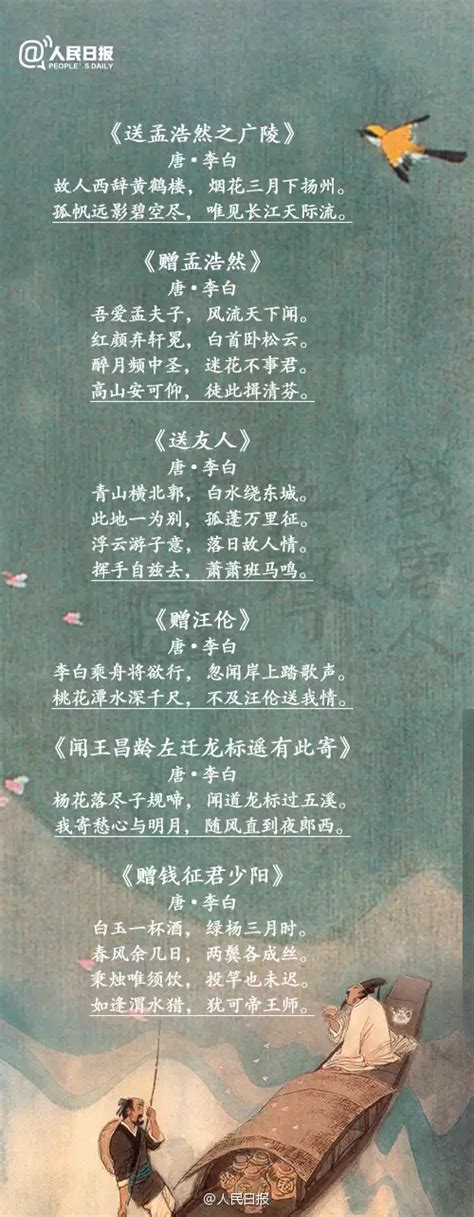 @人民日报
PEOPLE'S DAILY
《送孟浩然之广陵》
唐·李白
故人西辞黄鹤楼，烟花三月下扬州。
孤帆远影碧空尽，唯见长江天际流。
《赠孟浩然》
唐·李白
吾爱孟夫子，风流天下闻。
红颜弃轩冕，白首卧松云。
醉月频中圣，迷花不事君。
高山安可仰，徒此揖清芬。
《送友人》
唐·李白
青山横北郭，白水绕东城。
此地一为别，孤蓬万里征。
浮云游子意，落日故人情。
挥手自兹去，萧萧班马鸣。
《赠汪伦》
唐·李白
李白乘舟将欲行，忽闻岸上踏歌声。
桃花潭水深千尺，不及汪伦送我情。
《闻王昌龄左迁龙标遥有此寄》
唐·李白
杨花落尽子规啼，闻道龙标过五溪。
我寄愁心与明月，随风直到夜郎西。
《赠钱征君少阳》
唐·李白
白玉一杯酒，绿杨三月时。
春风余几日，两鬓各成丝。
秉烛唯须饮，投竿也未迟。
如逢渭水猎，犹可帝王师。
@人民日报